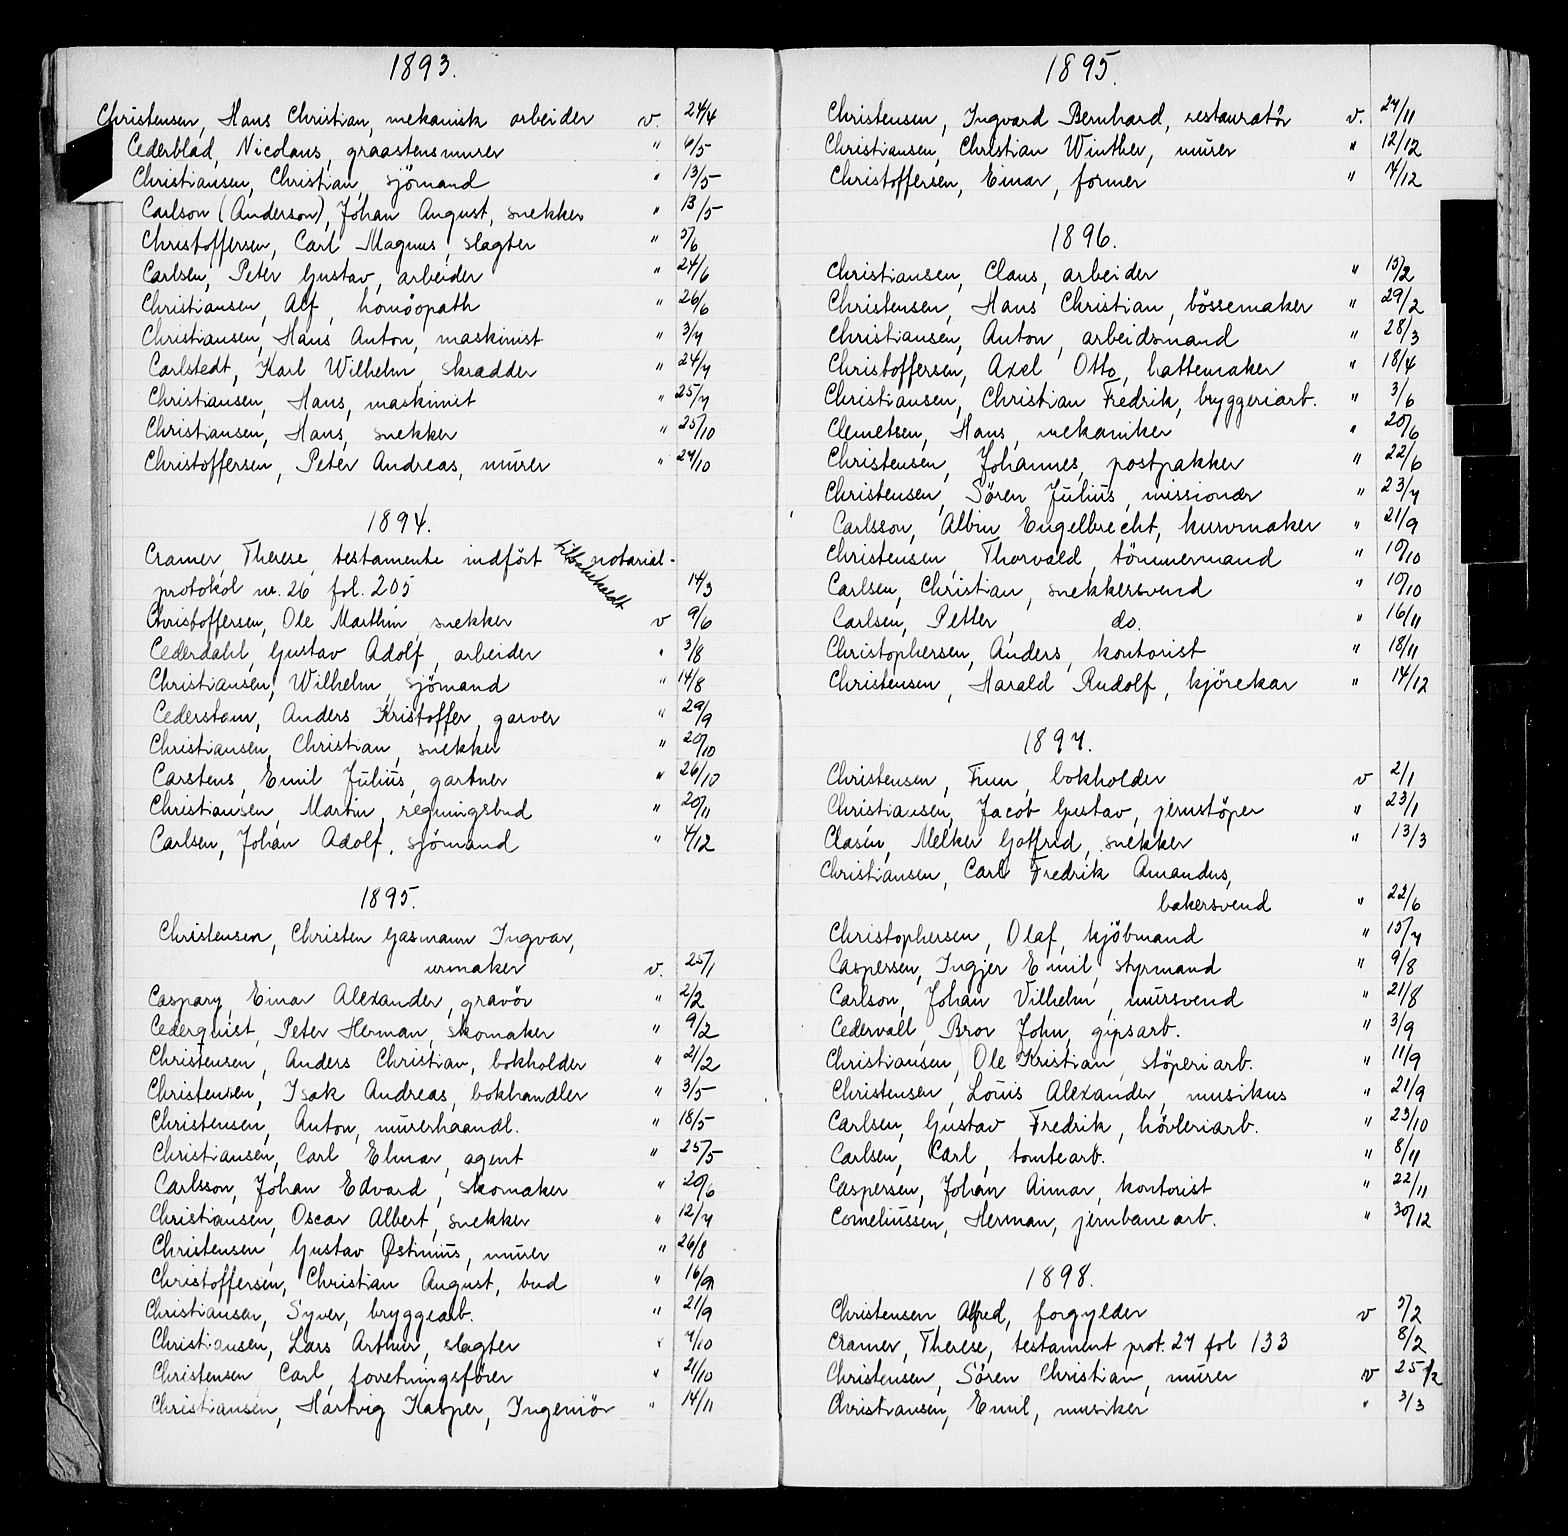 1893.
Christensen, Hans Christian, mekanisk arbeider v. 24/4
Cederblad, Nicolaus, graastensmurer " 6/5
Christiansen, Christian, sjömand " 13/5
Carlson (Anderson), Johan August, snekker " 13/5
Christoffersen, Carl Magnus, slagter " 5/6
Carlsen, Peter Gustav, arbeider " 24/6
Christiansen, Alf, homöopath " 26/6
Christiansen, Hans Anton, maskinist " 3/7
Carlstedt, Karl Wilhelm, skrædder " 24/7
Christiansen, Hans, maskinist " 25/7
Christiansen, Hans, snekker " 25/10
Christoffersen, Peter Andreas, murer " 27/10
1894.
Cramer, Therese, testamente indfört notarial-
tilbakekaldt
protokol nr. 26 fol. 205 14/3
Christoffersen, Ole Marthin snekker v 9/6
Cederdahl, Gustav Adolf, arbeider " 3/8
Christiansen, Wilhelm, sjömand " 14/8
Cederstam, Anders Kristoffer, garver " 29/9
Christiansen, Christian, snekker " 20/10
Carstens, Emil Julius, gartner " 26/10
Christiansen, Martin, regningsbud " 20/11
Carlsen, Johan Adolf, sjömand " 4/12
1895.
Christensen, Christen Gasmann Ingvar,
urmaker v. 25/1
Caspary, Einar Alexander, gravör " 2/2
Cederquist, Peter Herman, skomaker " 9/2
Christensen, Anders Christian, bokholder " 21/2
Christensen, Isak Andreas, bokhandler " 3/5
Christensen, Anton, murerhaandl. " 18/5
Christiansen, Carl Elmar, agent " 25/5
Carlsson, Johan Edvard, skomaker " 20/6
Christiansen, Oscar Albert, snekker " 12/7
Christensen, Gustav Østinius, murer " 26/8
Christoffersen, Christian August, bud " 16/9
Christiansen, Syver, bryggearb. " 21/9
Christiansen, Lars Arthur, slagter " 7/10
Christensen, Carl, forretningsförer " 21/10
Christiansen, Hartvig Kasper, Ingeniör " 14/11
1895.
Christensen, Ingvard Bernhard, restauratör v. 27/11
Christiansen, Christian Winther, murer " 12/12
Christoffersen, Einar, former " 7/12
1896.
Christiansen, Claus, arbeider " 15/2
Christensen, Hans Christian, bössemaker " 29/2
Christiansen, Anton, arbeidsmand " 28/3
Christoffersen, Axel Otto, hattemaker " 18/4
Christiansen, Christian Fredrik, bryggeriarb. " 3/6
Clemetsen, Hans, mekaniker " 20/6
Christensen, Johannes, postpakker " 22/6
Christensen, Sören Julius, missionær " 23/7
Carlsson, Albin Engelbrecht, kurvmaker " 21/9
Christensen, Thorvald, tömmermand " 10/10
Carlsen, Christian, snekkersvend " 10/10
Carlsen, Petter, do. " 16/11
Christophersen, Anders, kontorist " 18/11
Christensen, Harald Rudolf, kjörekar " 14/12
1897.
Christensen, Finn, bokholder v 2/1
Christiansen, Jacob Gustav, jernstöper " 23/1
Clasén, Melker Gotfrid, snekker " 13/3
Christiansen, Carl Fredrik Amandus,
bakersvend " 22/6
Christophersen, Olaf, kjöbmand " 15/7
Caspersen, Ingjer Emil, styrmand " 9/8
Carlson, Johan Vilhelm, mursvend " 21/8
Cedervall, Bror John, gipsarb. " 3/9
Christiansen, Ole Kristian, stöperiarb. " 11/9
Christensen, Louis Alexander, musikus " 21/9
Carlsen, Gustav Fredrik, hövleriarb. " 23/10
Carlsen, Carl, tomtearb. " 8/11
Caspersen, Johan Aimar, kontorist " 22/11
Corneliussen, Herman, jernbanearb. " 30/12
1898.
Christensen Alfred, forgylder v 5/2
Cramer, Therese, testament prot. 27 fol 133 8/2
Christensen, Sören Christian, murer v 25/2
Christiansen, Emil, musiker " 3/3